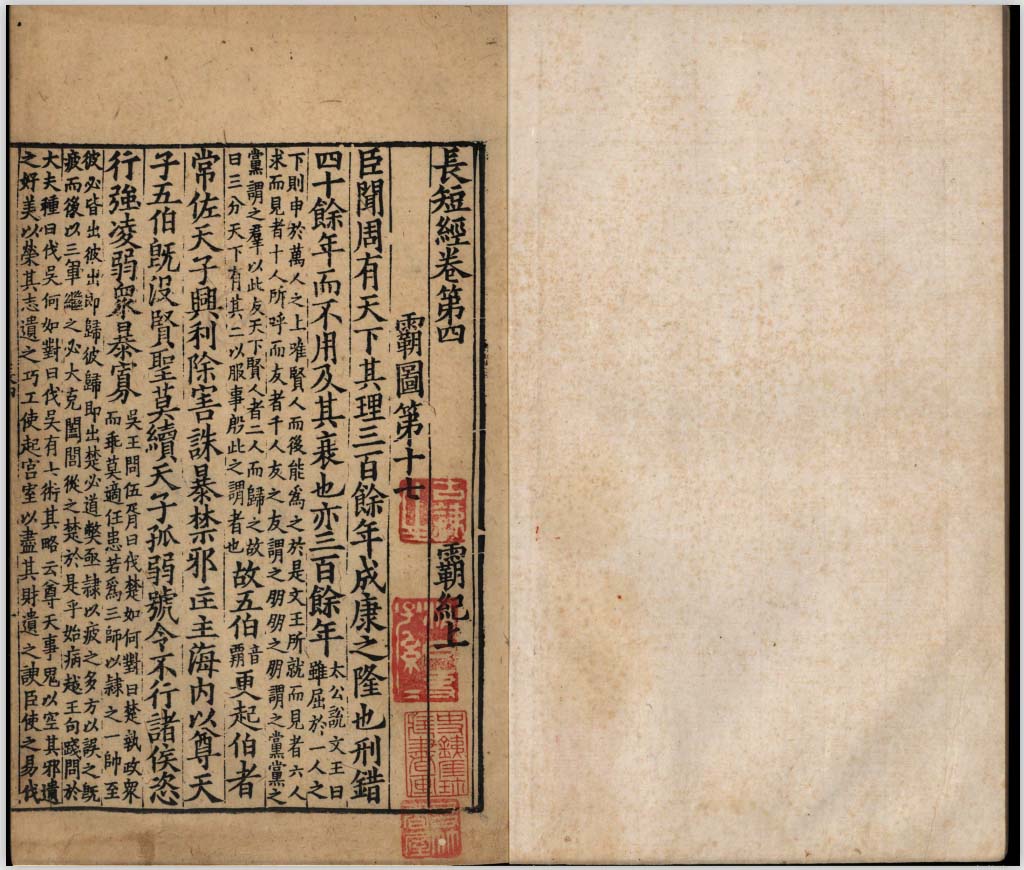 長短經卷第四 霸紀上
霸圖第十七
臣聞周有天下其理三百餘年成康之隆也刑錯
四十餘年而不用及其衰也亦三百餘年
太公說文王曰
雖屈於一人之
下則申於萬人之上唯賢人而後能爲之於是文王所就而見者六人
求而見者十人所呼而友者千人友之友謂之朋朋之朋謂之黨黨之
黨謂之羣以此友天下賢人者二人而歸之故
曰三分天下有其二以服事殷此之謂者也
故五伯音霸更起伯者
常佐天子興利除害誅暴禁邪匡主海内以尊天
子五伯旣没賢聖莫續天子孤弱號令不行諸侯恣
行強凌弱衆暴寡
吳王問伍胥曰伐楚如何對曰楚執政衆
而乖莫適任患若爲三師以隷之一師至
彼必皆出彼出即歸彼歸即出楚必道獘亟隷以疲之多方以誤之旣
疲而後以三軍繼之必大克闔閭從之楚於是乎始病越王句踐問於
大夫種曰伐吳何如對曰伐吳有七術其略云尊天事鬼以空其邪遺
之好美以榮其志遺之巧工使起宮室以盡其財遺之諛臣使之易伐